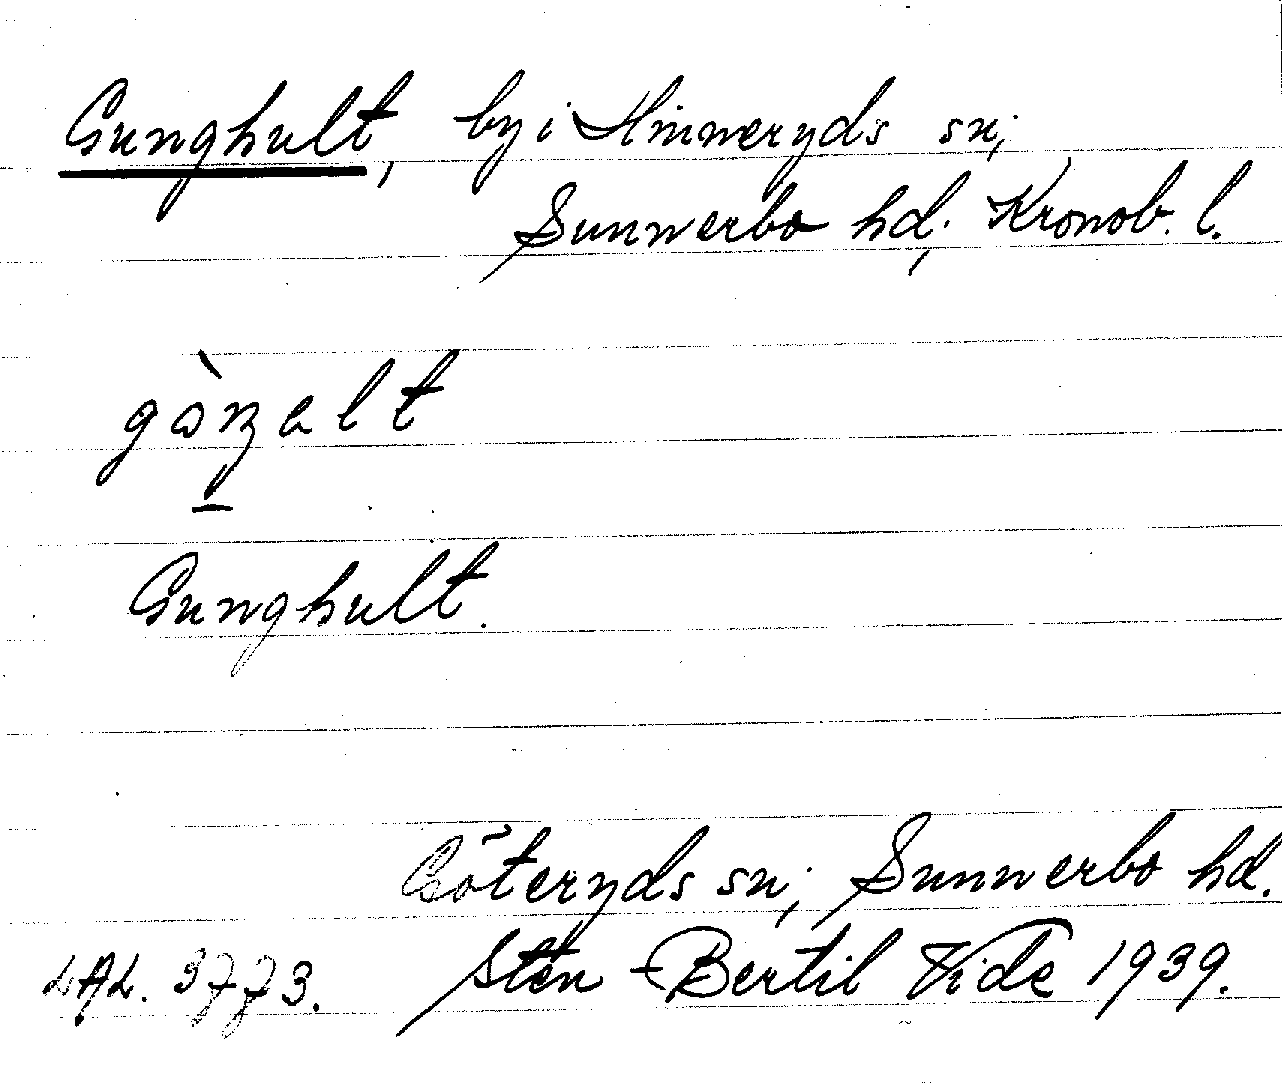 Gunghult, by i Hinneryds sn;
Sunnerbo hd; Kronob. l.
gòŋalt
Gunghult.
Göteryds sn; Sunnerbo hd.
LAL. 3773. Sten-Bertil Vide 1939.